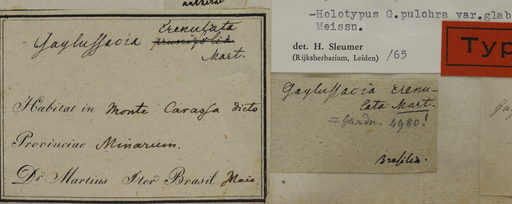 Gaylussacia crenulata
prunifolia
Mart.
Habitat in Monte Carassa dicto
Provinciae Minarum.
Dr Martius Iter Brasil. Maio.
-Holotypus G.pulchra var.glab
Meissn.
det. H. Sleumer
(Rijksherbarium, Leiden) /65
Typ
Gaylussacia crenu-
lata Mart.
= Gardn. 4980!
Brasilia.